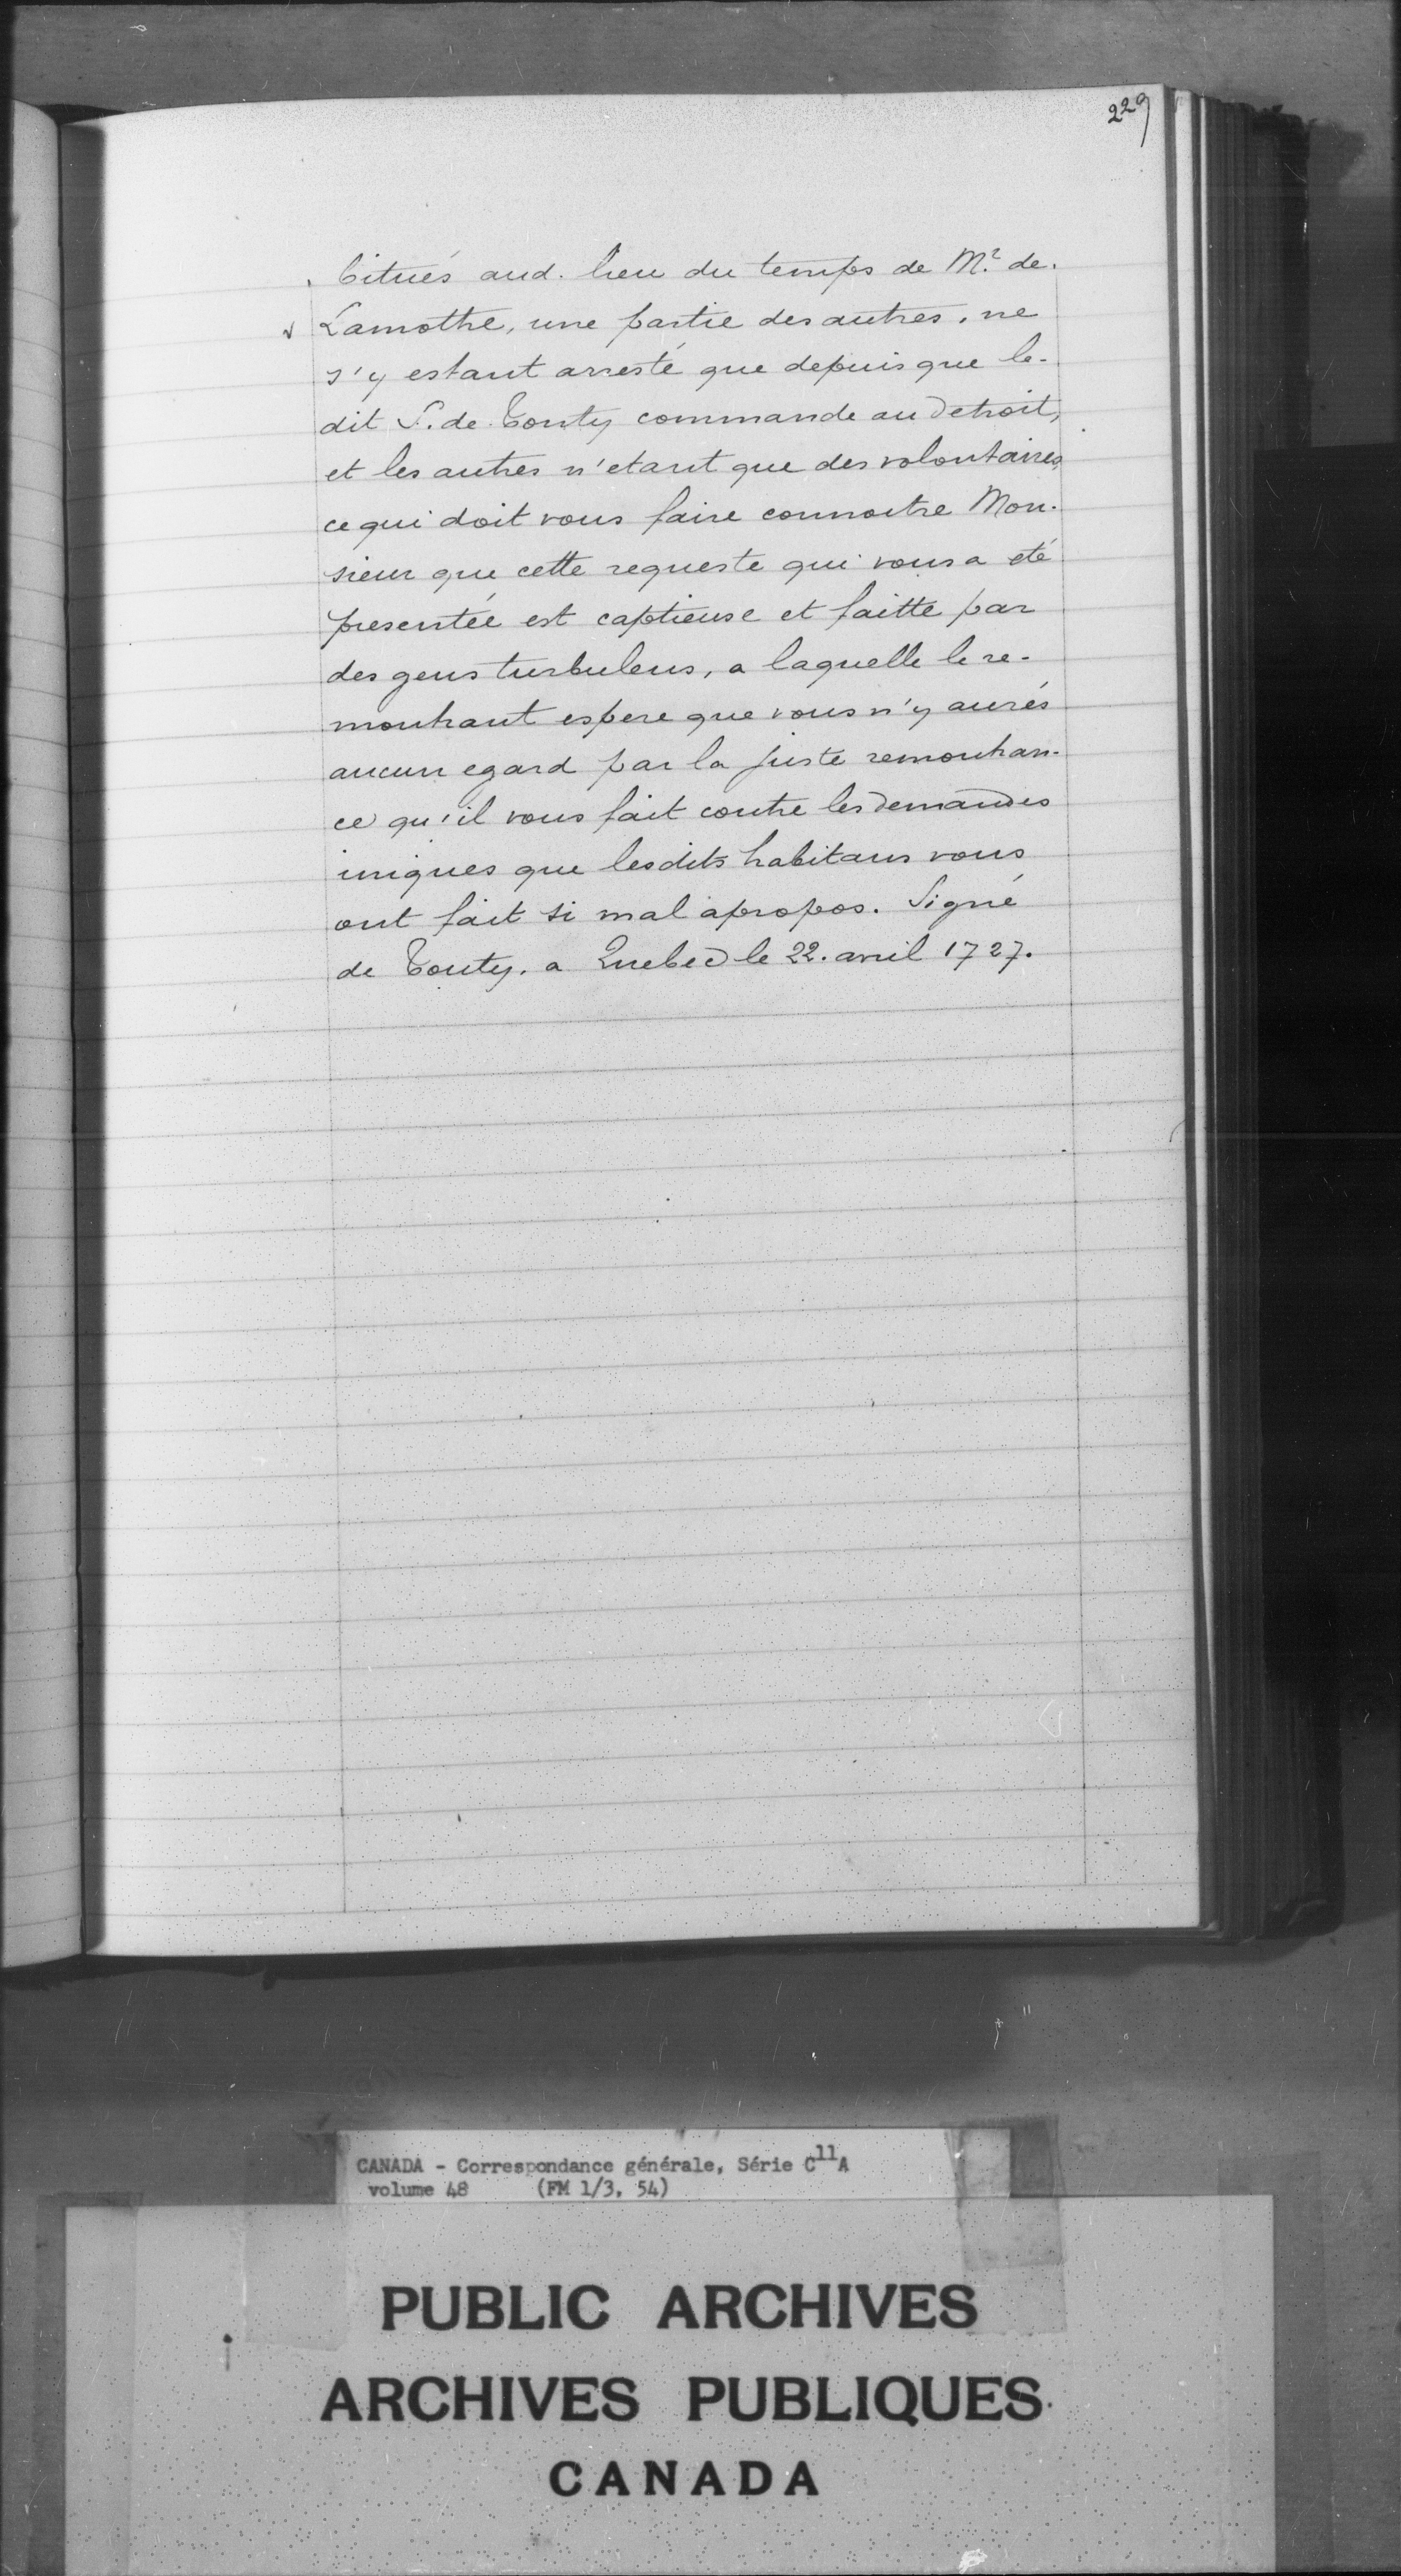 229
bitués aud. lieu du temps de M.r de
Lamothe, une partie des autres, ne
s'y estant aresté que depuis que le-
dit S. de Tonty commande au Detroit,
et les autres n'etant que des volontaires,
ce qui doit vous faire connoitre Mon-
sieur que cette requeste qui vous a eté
presentée est captieuse et faitte par
des gens turbulens, a laquelle le re-
montrant espere que vous n'y aurés
aucun egard par la juste remontran-
ce qu'il vous fait contre les demandes
iniques que lesdits habitans vous
ont fait si mal apropos. Signé
de Tonty. a Quebec le 22. avril 1727.
CANADA - Correspondance générale, Série C11A
volume 48 (FM 1/3, 54)
PUBLIC ARCHIVES
ARCHIVES PUBLIQUES
CANADA